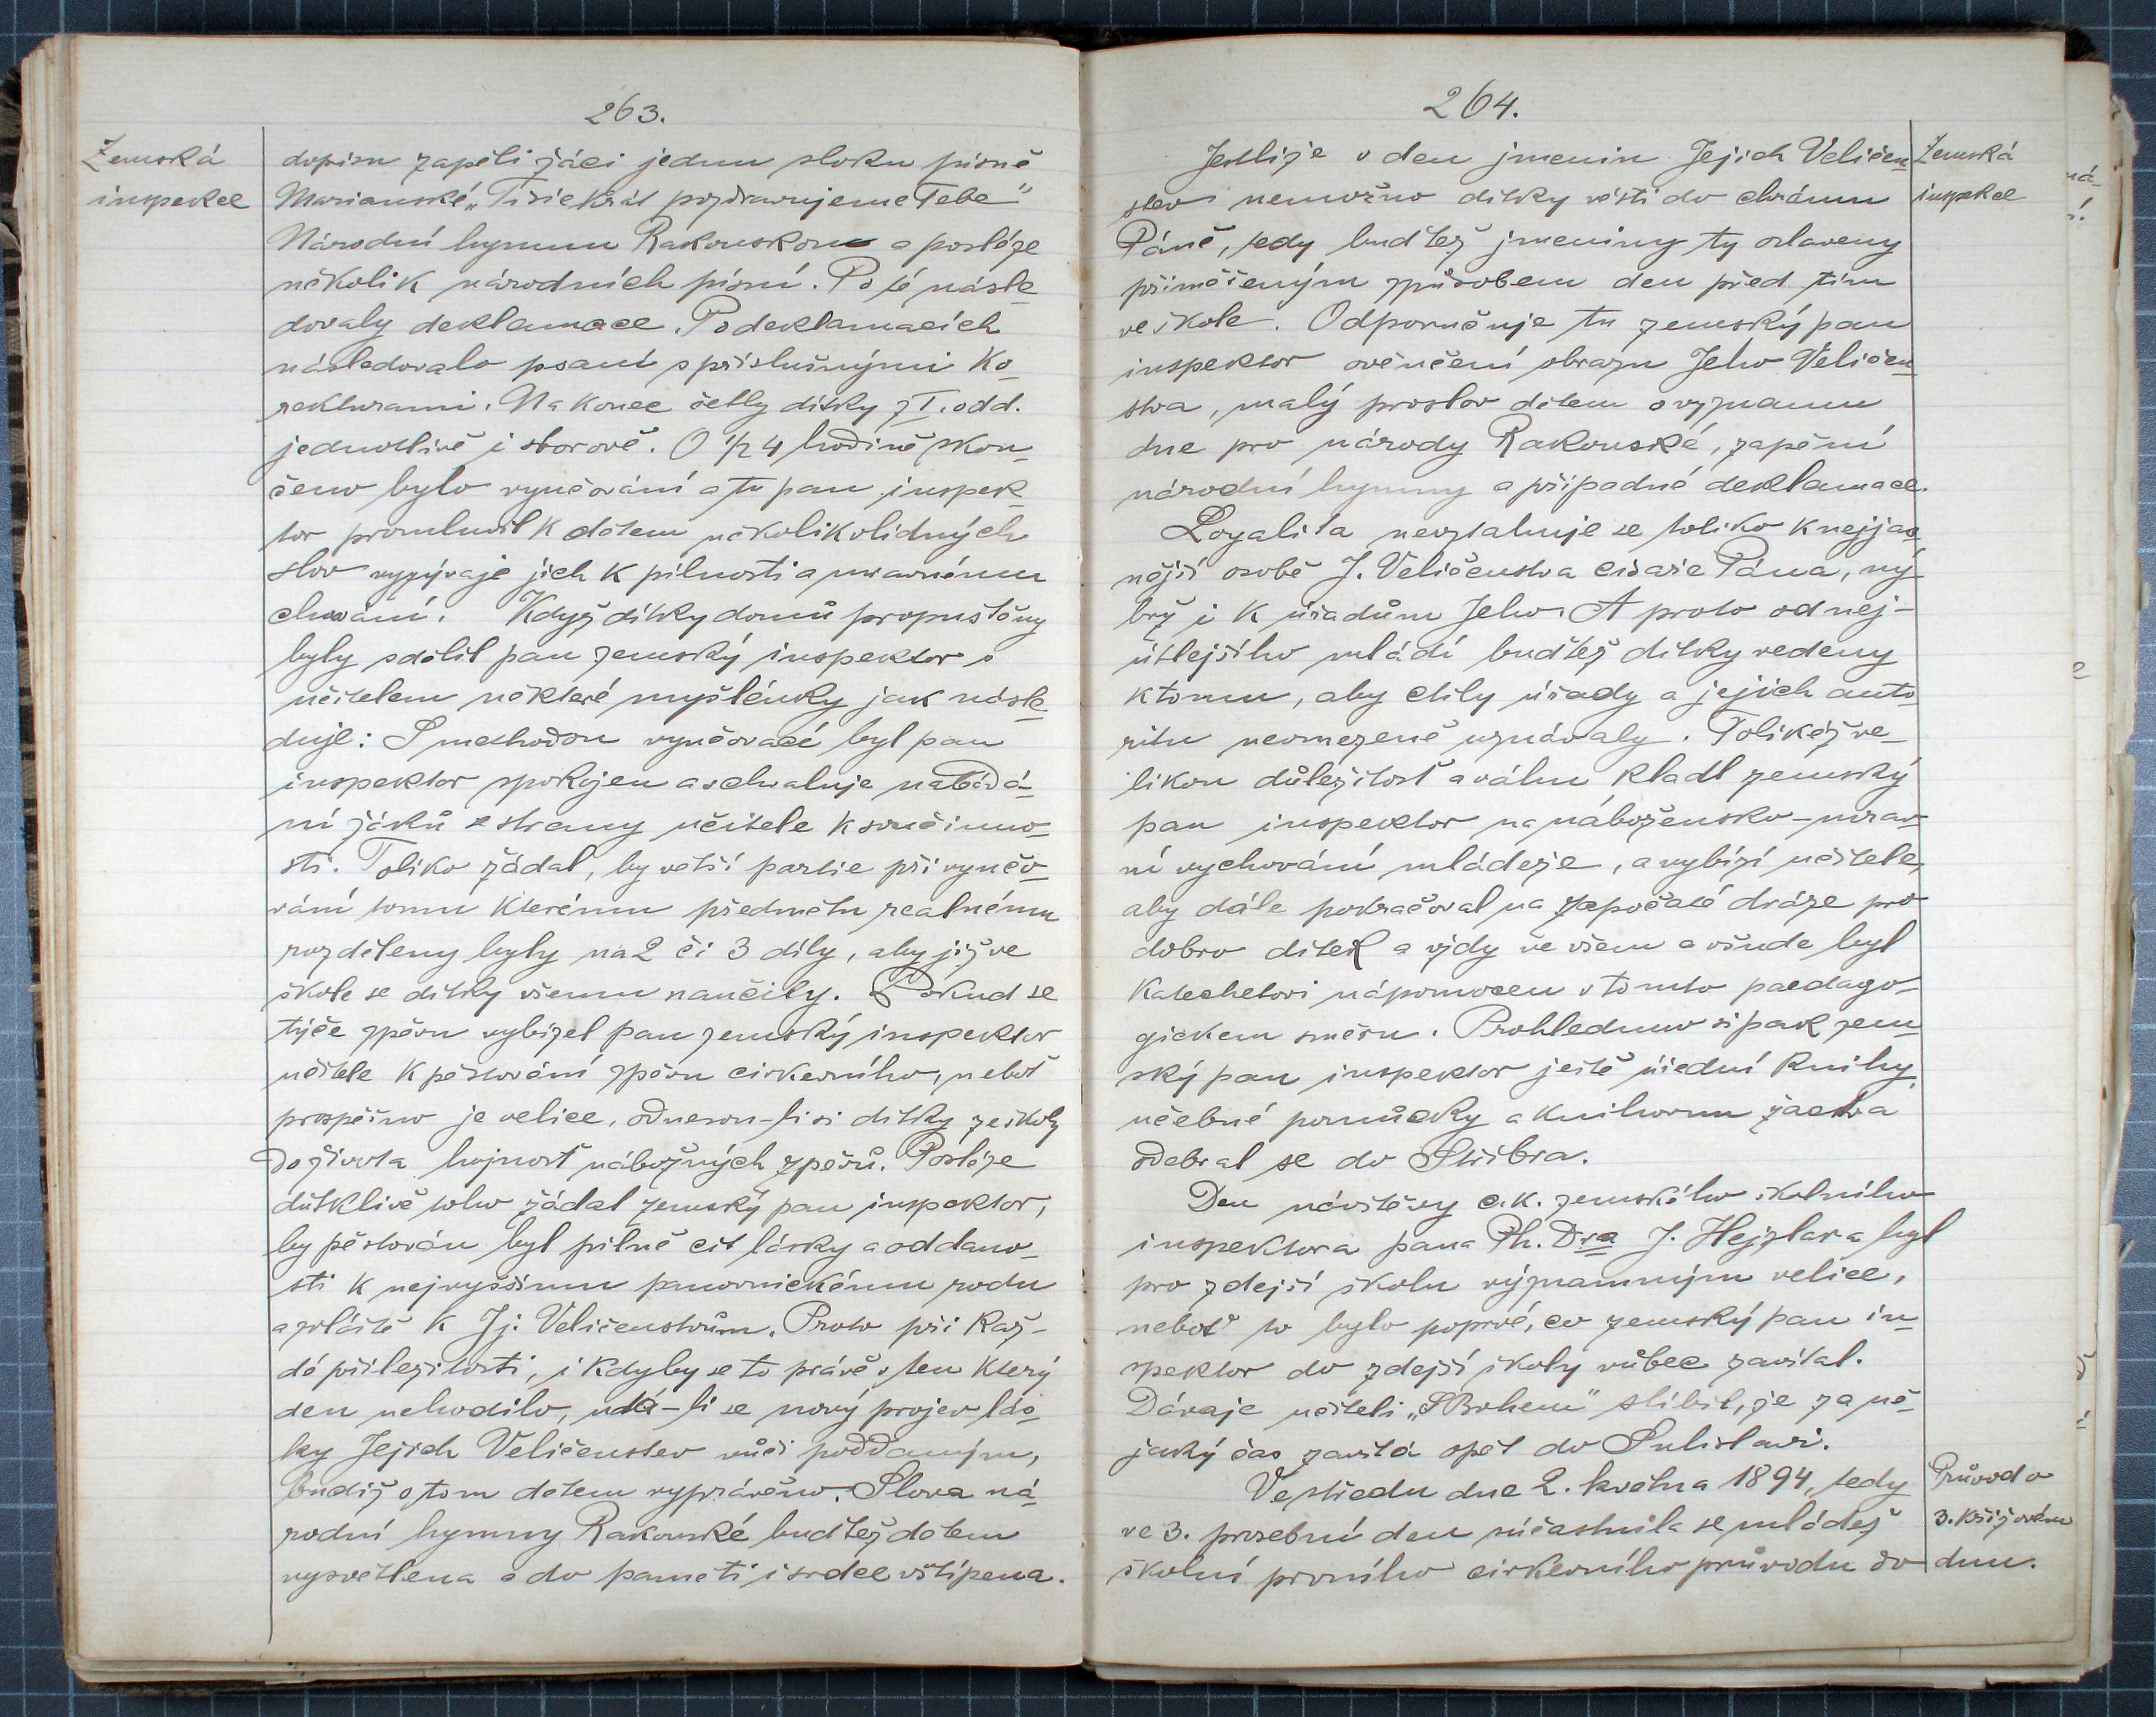 263.
Zemská
inspekce
dopisu zapěli žáci jednu sloku písně
Marianské „Tisickrát pozdravujeme Tebe"
Národní hymnu Rakouskou a posléze
několik národních písní. Po té násle-
dovaly deklamace. Po deklamacích
následovalo psaní s příslušnými ko-
rekturami. Na konec četly dítky z I. odd.
jednotlivě i sborově. O 1/2 4 hodině skon-
čeno bylo vyučování a tu pan inspek-
tor promluvil k dětem několik vlídných
slov vyzývaje jich k pilnosti a mravnému
chování. Když dítky domů propuštěny
byly sdělil pan zemský inspektor s
učitelem některé myšlénky jak násle-
duje: S methodou vyučovací byl pan
inspektor spokojen a schvaluje nabádá-
ní žáků se strany učitele k součinno-
sti. Toliko žádal, by vetší partie při vyučo-
vání tomu kterému předmětu realnému
rozděleny byly na 2 či 3 díly, aby již ve
škole se dítky všemu naučily. Pokud se
týče zpěvu vybízel pan zemský inspektor
učitele k pěstování zpěvu cirkevního, neboť
prospěšno je velice, odnesou-li si dítky ze školy
do života hojnost nábožných zpěvů. Posléze
důtklivě toho žádal zemský pan inspektor,
by pěstován byl pilně cit lásky a oddano-
sti k nejvyššímu panovnickému rodu
a zvláště k Jj. Veličenstvům. Proto při kaž-
dé příležitosti, i kdyby se to právě v ten který
den nehodilo, udá-li se nový projev lás-
ky Jejich Veličenstev vůči poddaným,
budiž o tom dětem vypráveno. Slova ná-
rodní hymny Rakouské buďtež dětem
vysvětlena a do pameti i srdce vštípena.
264.
Zemská
inspekce
Jestliže v den jmenin Jejich Veličen-
stev nemožno dítky vésti do chrámu
Páně, tedy buďtež jmeniny ty oslaveny
přiměřeným způsobem den před tím
ve škole. Odporučuje tu zemský pan
inspektor ověnčení obrazu Jeho Veličen-
stva, malý proslov dětem o významu
dne pro národy Rakouské, zapění
národní hymny a případné deklamace.
Loyalita nevztahuje se toliko k nejjas-
nější osobě J. Veličenstva císaře Pána, ný-
brž i k úřadům Jeho. A proto od nej-
útlejšího mládí buďtež dítky vedeny
k tomu, aby ctily úřady a jejich auto-
ritu neomezeně uznávaly. Tolikéž ve-
likou důležitost a váhu kladl zemský
pan inspektor na nábožensko-mrav-
ní vychování mládeže, a vybízí učitele,
aby dále pokračoval na započaté dráze pro
dobro dítek a vždy ve všem a všude byl
katechetovi nápomocen v tomto paedago-
gickem směru. Prohlednuv si pak zem-
ský pan inspektor ještě úřední knihy,
učebné pomůcky a knihovnu žactva
odebral se do Stříbra.
Den návštěvy c. k. zemského školního
inspektora pana Ph. Dra J. Hejzlara byl
pro zdejší školu významným velice,
neboť to bylo poprvé, co zemský pan in-
spektor do zdejší školy vůbec zavítal.
Dávaje učiteli „S Bohem" slíbil, že za ně-
jaký čas zavítá opět do Sulislavi.
Průvod o
3. křižovém
dnu.
Ve středu dne 2. května 1894, tedy
ve 3. prosebný den súčastnila se mládež
školní prvního cirkevního průvodu do